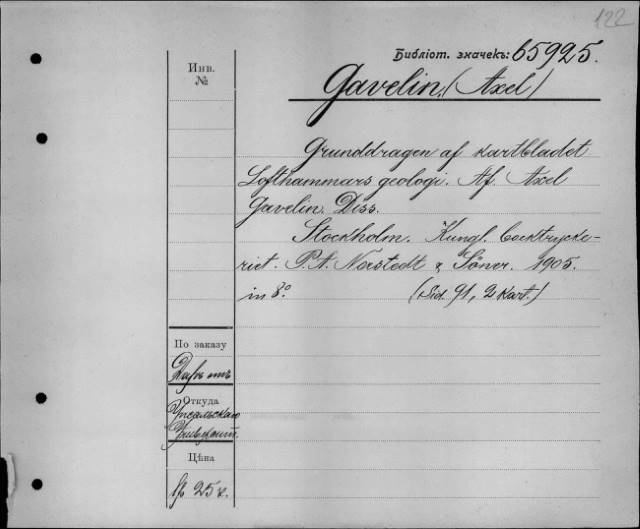 122
Библіот. значекъ: 65925.
Инв.
№
Gavelin. (Axel)
Grunddragen af kartbladet
Lofthammars geologi. Af. Axel
Gavelin. Diss.
Stockholm. Kungl. bocktrycke-
riet. P. A. Norstedt & Söner. 1905.
in 8.° (Sid. 91, 2 kart.)
По заказу
Даръ отъ
Откуда
Упсальскаго
Университ.
Цѣна
25 к.